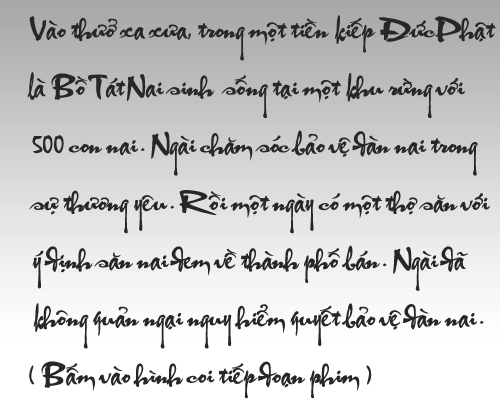 Vào thuở xa xưa, trong một tiền kiếp Đức Phật
là Bồ Tát Nai sinh sống tại một khu rừng với
500 con nai. Ngài chăm sóc bảo vệ đàn nai trong
sự thương yêu. Rồi một ngày có một thợ săn với
ý định săn nai đem về thành phố bán. Ngài đã
không quản ngại nguy hiểm quyết bảo vệ đàn nai.
( Bấm vào hình coi tiếp đoạn phim )